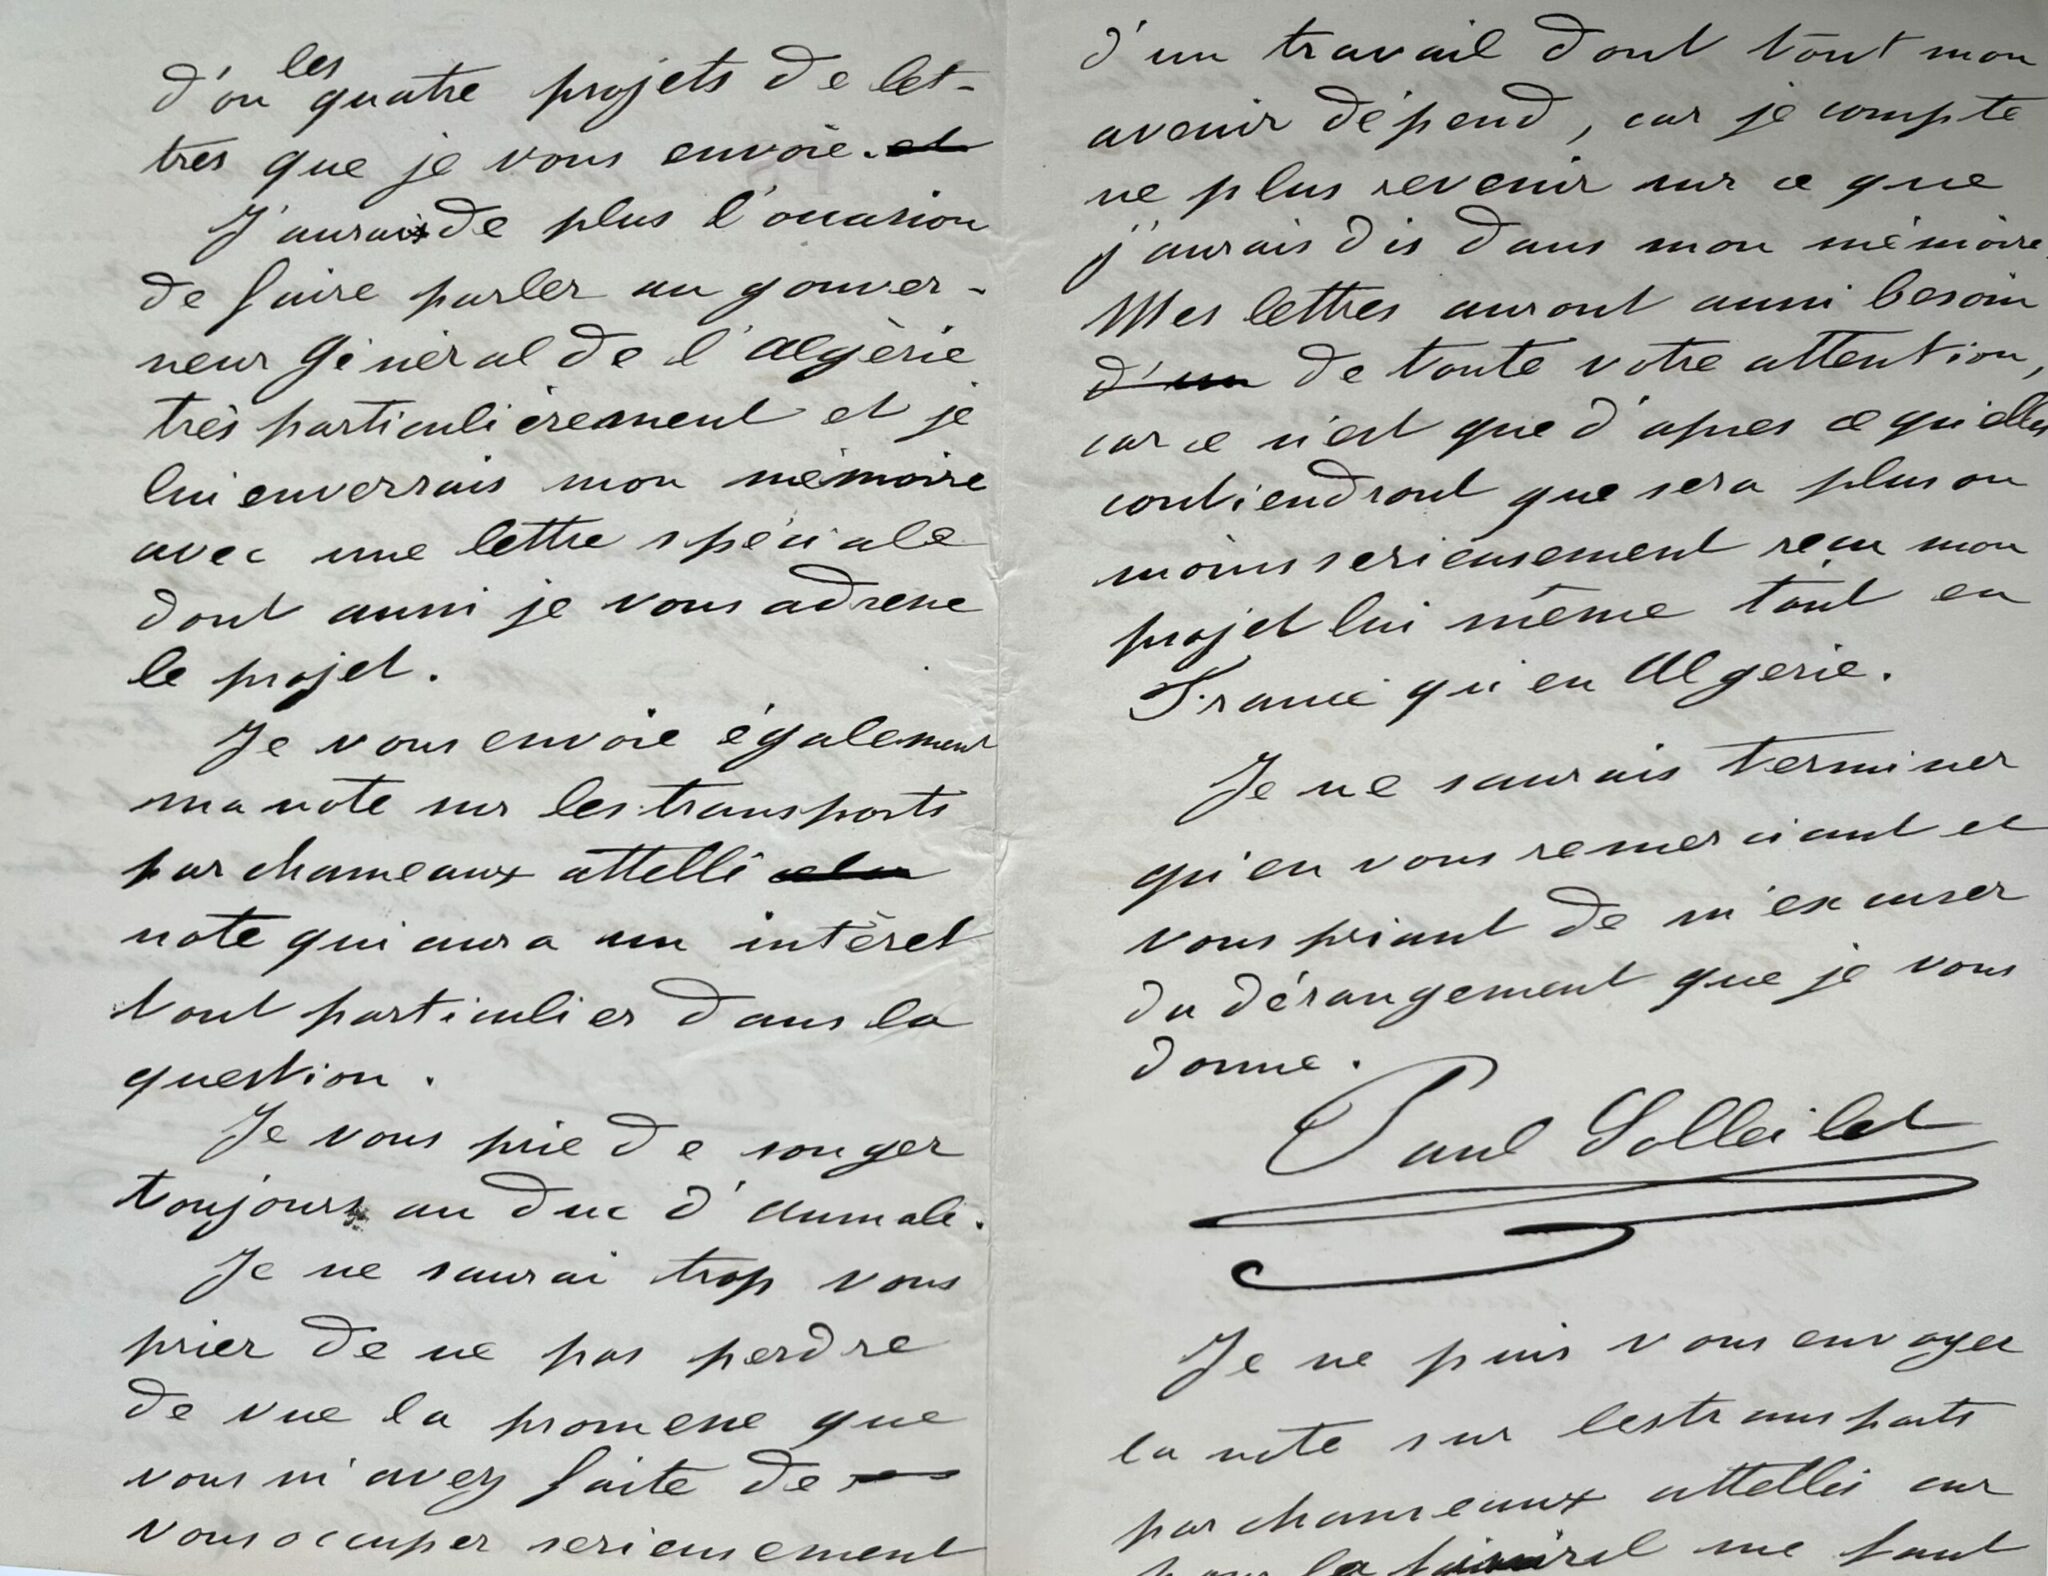 d'où les quatre projets de let-
tres que je vous envoie. et
J'aurais de plus l'occasion
de faire parler au gouver-
neur Général de l'Algèrie
très particulièrement et je
lui enverrais mon mémoire
avec une lettre spéciale
dont aussi je vous adresse
le projet.
Je vous envoie également
ma note sur les transports
par chameaux attelli
note qui aura un intèret
tout particulier dans la
question.
Je vous prie de songer
toujours au Duc d'Aumale.
Je ne saurai trop vous
prier de ne pas perdre
de vue la promesse que
vous m'avez faite de
vous occuper serieusement
d'un travail dont tout mon
avenir dépend, car je compte
ne plus revenir sur ce que
j'aurais dis dans mon mémoire.
Mes lettres auront aussi besoin
d'un de toute votre attention,
car ce n'est que d'apres ce qu'elles
contiendront que sera plus ou
moins serieusement recu mon
projet lui même tant en
France qu'en Algerie.
Je ne saurais terminer
qu'en vous remerciant et
vous priant de m'excuser
du dérangement que je vous
donne.
Paul Solleilet
Je ne puis vous envoyer
la note sur les transports
par chameaux attellés car
pour la me faut